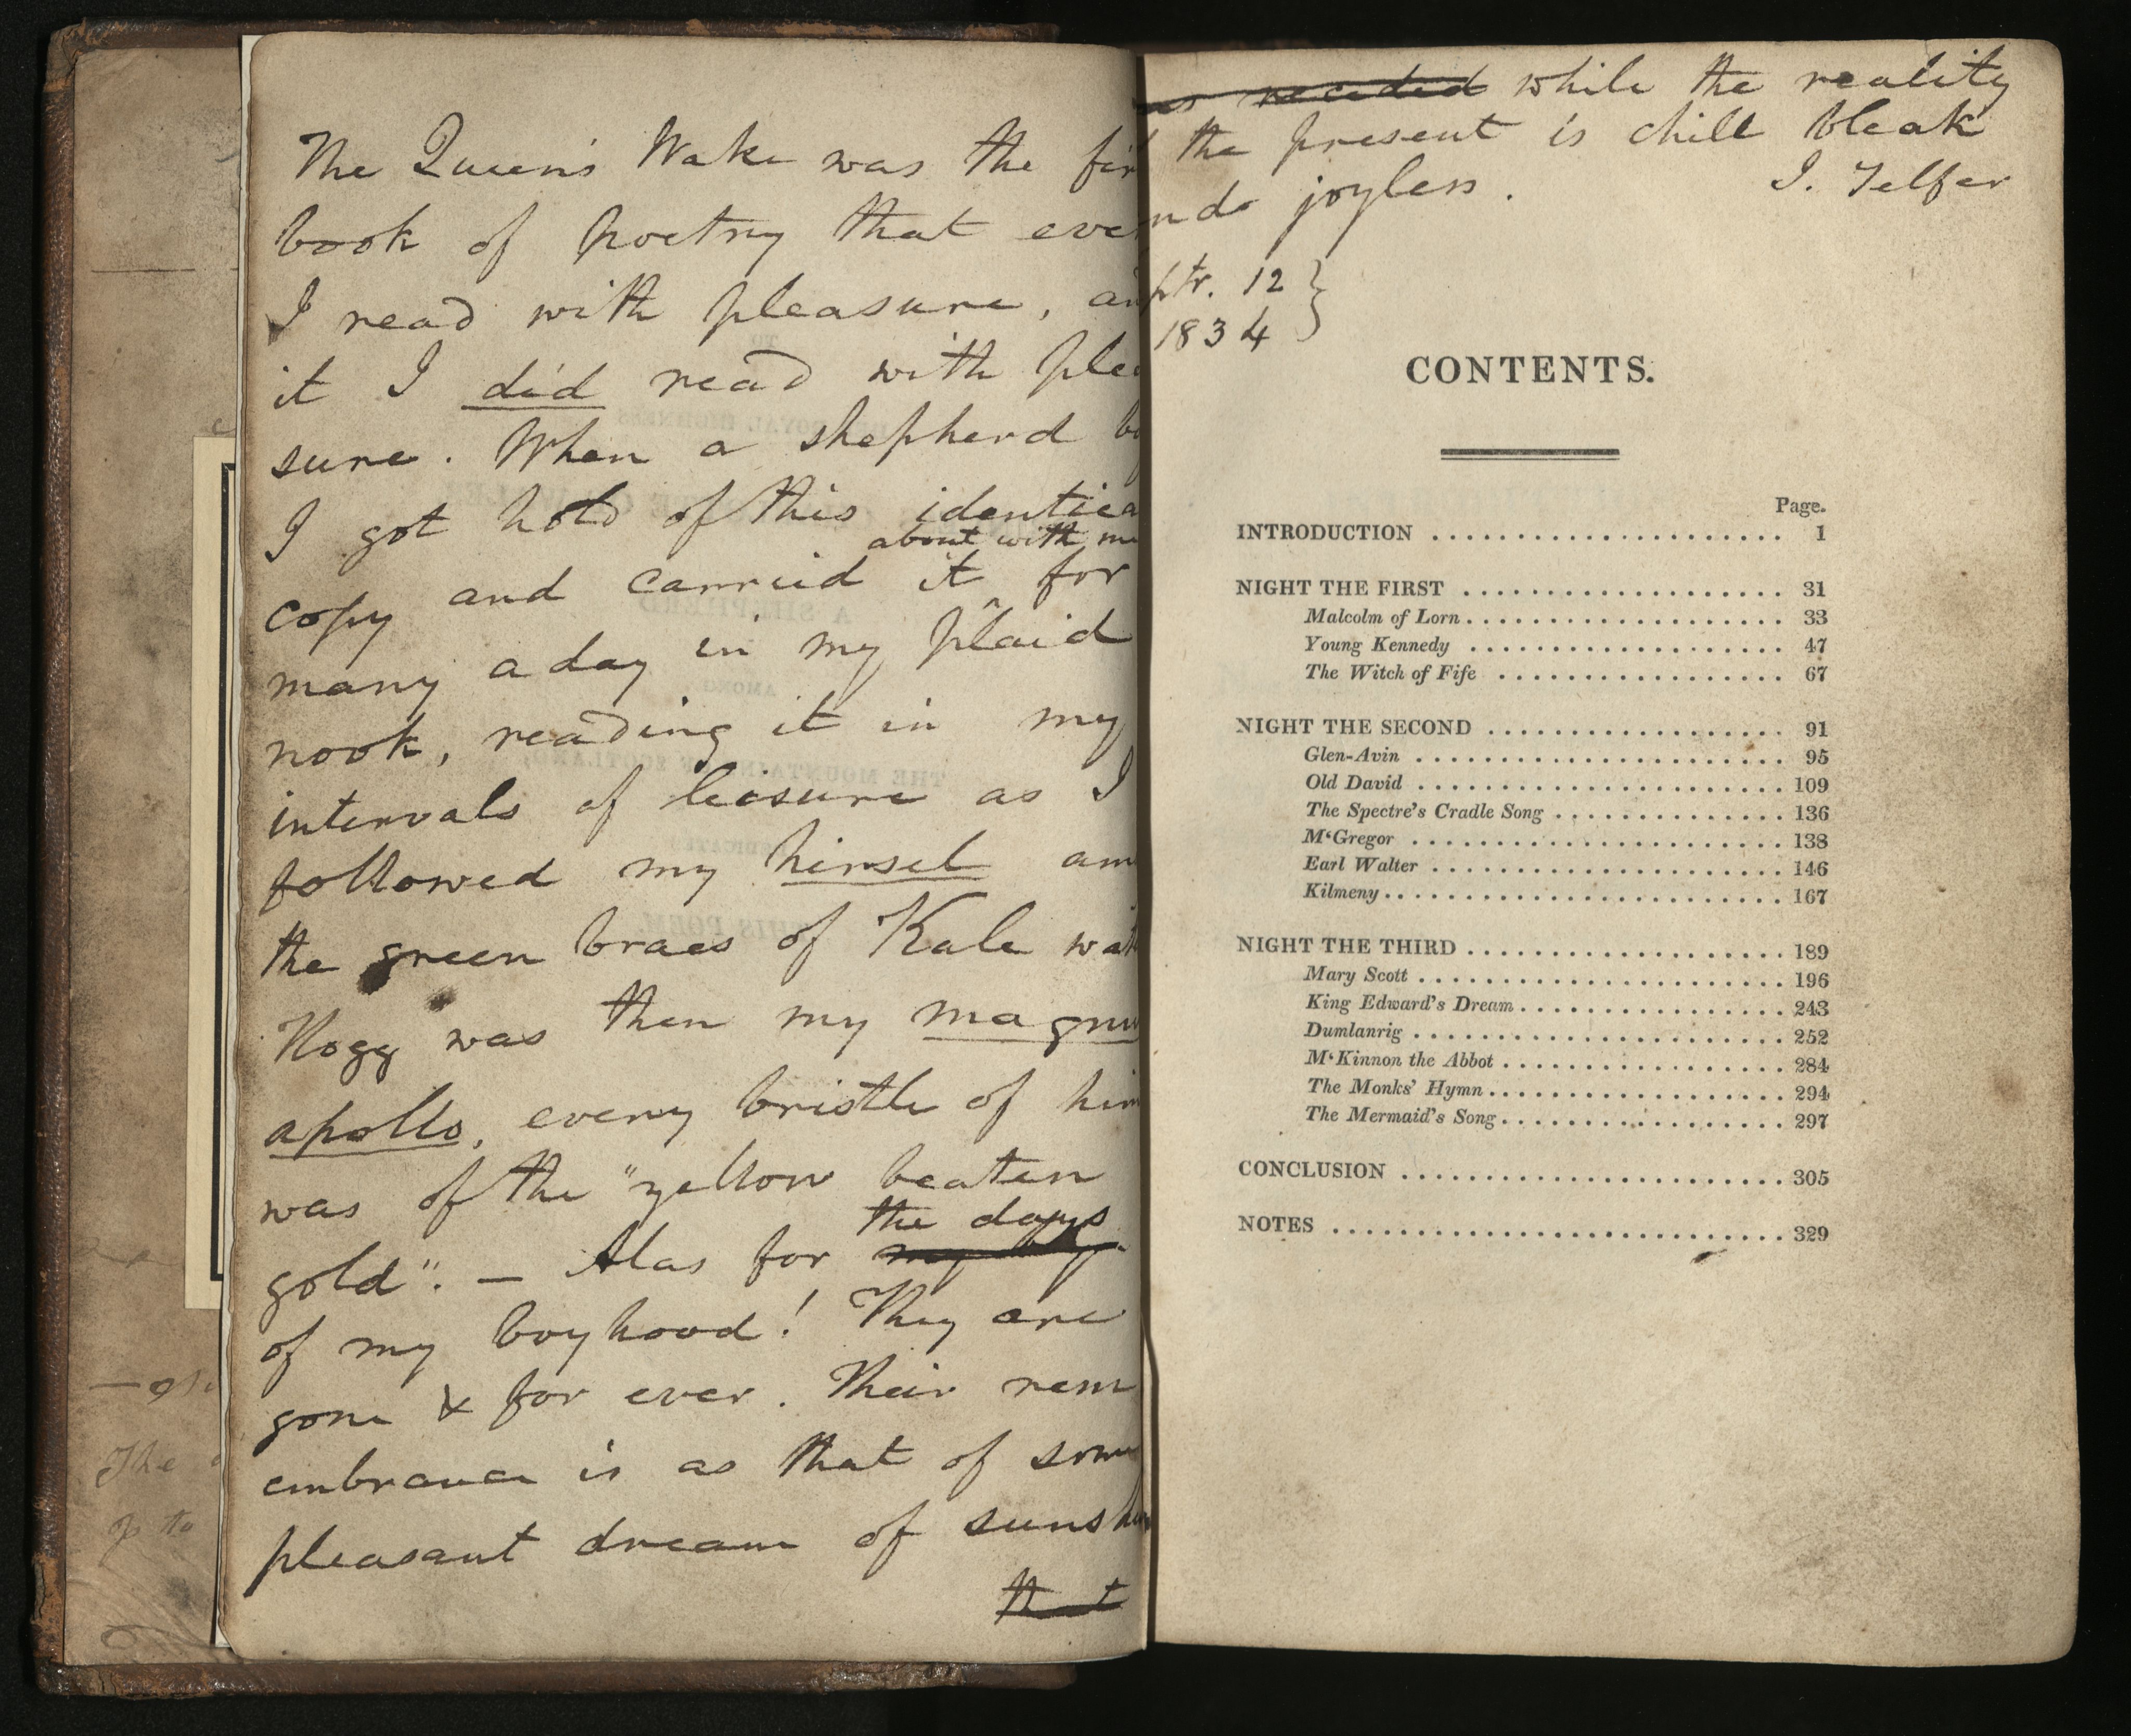 The Queen's Wake was the fir
book of poetry that eve
I read with pleasure, an
it I did read with plea
sure. When a shepherd bo
I got hold of this identica
about with me
copy and carried it ^ for
many a day in my plaid
nook, reading it in my
intervals of leisure as I
followed my hirsel am
the green braes of Kale wat
Hogg was then my magnu
apollo, every bristle of him
was of the "yellow beaten
the days
gold". — Alas for
of my boyhood! They are
gone & for ever. Their rem
embrance is as that of some
pleasant dream of sunshin
that
as receded while the reality
the present is chill bleak
nd joyless.
I. Telfer
ptr. 12
1834
CONTENTS.
Page.
INTRODUCTION ..................... 1
NIGHT THE FIRST .................... 31
Malcolm of Lorn ................... 33
Young Kennedy ................... 47
The Witch of Fife .................. 67
NIGHT THE SECOND .................. 91
Glen-Avin ....................... 95
Old David ...................... 109
The Spectre's Cradle Song .............. 136
M'Gregor ....................... 138
Earl Walter ..................... 146
Kilmeny ........................ 167
NIGHT THE THIRD ................... 189
Mary Scott ...................... 196
King Edward's Dream ................ 243
Dumlanrig ...................... 252
M'Kinnon the Abbot ................. 284
The Monks' Hymn .................. 294
The Mermaid's Song ................. 297
CONCLUSION ....................... 305
NOTES ........................... 329